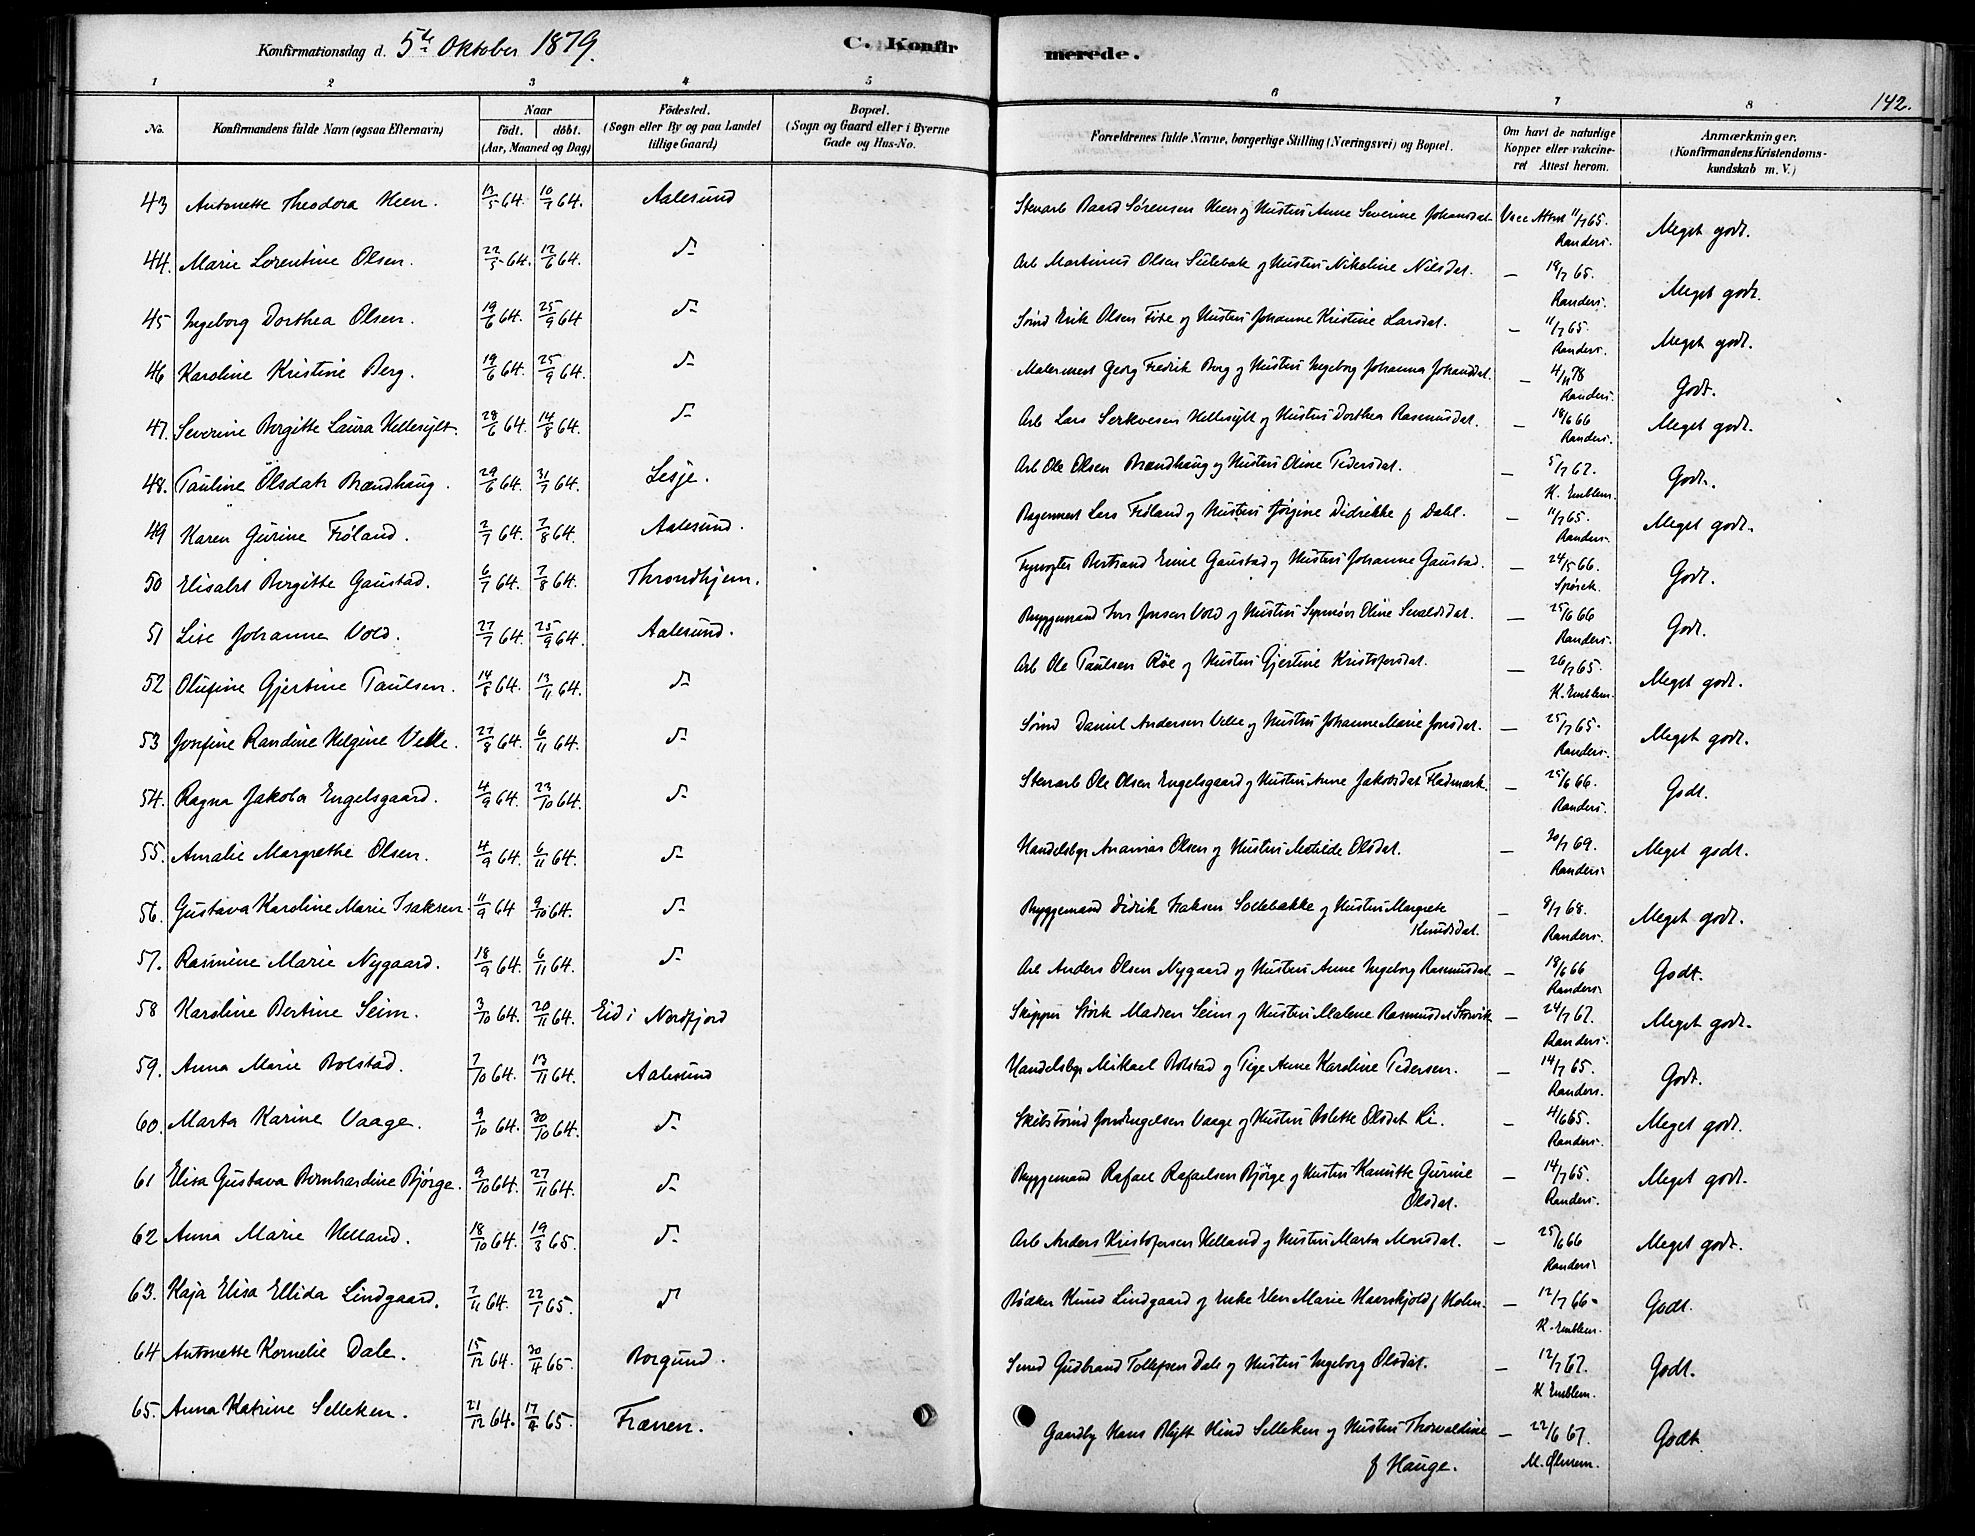 Konfirmationsdag d. 5te Oktober 1879.
C. Konfir
merede.
142.
1 2 3 4 5 6 7 8
No. Konfirmandens fulde Navn (ogsaa Efternavn) Naar født. døbt. (Aar, Maaned og Dag) Fødested. (Sogn eller By og paa Landet tillige Gaard) Bopæl. (Sogn og Gaard eller i Byerne Gade og Hus-No. Forældrenes fulde Navne, borgerlige Stilling (Næringsvei) og Bopæl. Om havt de naturlige Kopper eller vakcineret Attest herom. Anmærkninger. (Konfirmandens Kristendomskundskab m. V.)
43 Antonette Theodora Heen. 13/5 64. 10/7 64. Aalesund Stenarb Baard Sørensen Heen og Hustru Anne Severine Johansdat. Vacc Attest 11/7 65. Randers. Meget godt.
44. Marie Lorentine Olsen. 22/5 64. 12/6 64. do Arb Martinus Olsen Sulebak og Hustru Nikoline Nilsdat. — 19/7 65. Randers. Meget godt.
45 Ingeborg Dorthea Olsen. 19/6 64. 25/9 64 do Smd Erik Olsen og Hustru Johanne Kristine Larsdat. — 11/7 65. Randers. Meget godt.
46 Karoline Kristine Berg. 19/6 64. 25/9 64. do Malermest Georg Fredrik Berg og Hustru Ingeborg Johanna Johansdat. — 4/11 78 Randers. Godt.
47. Severine Bergitte Laura Hellesylt. 28/6 64. 14/8 64. do Arb Lars Hellesylt og Hustru Dorthea Rasmusdat. — 18/6 66 Randers. Meget godt.
48. Pauline Olsdatr Brændhaug. 29/6 64. 31/7 64. Lesje. Arb Ole Olsen Brændhaug og Hustru Oline Pedersdat. — 5/7 67. K. Emblem. Godt.
49 Karen Gurine Frøland. 2/7 64. 7/8 64. Aalesund. Bagermest Lars Frøland og Hustru Jørgine Didrikke f Dahl. — 11/7 65. Randers. Meget godt.
50 Elisabet Bergitte Gaustad. 6/7 64. 7/8 64. Throndhjem. Fyrvogter Bertrand Gaustad og Hustru Johanne Gaustad. — 24/5 66. Godt.
51 Lise Johanna Vold. 27/7 64. 25/9 64. Aalesund. Byggemand Iver Jonsen Vold og Hustru Synnøv Oline Sivaldsdat. — 25/6 66 Randers. Godt.
52 Olufine Gjertine Paulsen. 14/8 64. 13/11 64. do Arb Ole Paulsen Røe og Hustru Gjertine Kristofersdat. — 26/7 65. K. Emblem. Meget godt.
53 Josefine Randine Helgine Velle. 27/8 64. 6/11 64. do Smd Daniel Andersen Velle og Hustru Johanne Marie Jonsdat. — 25/7 65. Randers. Meget godt.
54. Ragna Jakoba Engelsgaard. 4/9 64. 23/10 64. do Stenarb Ole Olsen Engelsgaard og Hustru Anne Jakobsdat Flademark. — 25/6 66. Randers. Godt.
55. Amalie Margrethe Olsen. 4/9 64. 6/11 64. do Handelsbgr Ananias Olsen og Hustru Matilde Olsdat. — 20/7 69. Randers. Meget godt.
56. Gustava Karoline Marie Isaksen. 11/9 64 9/10 64. do Byggemand Didrik Isaksen Solebakke og Hustru Margrete Knudsdat. — 9/7 68. Randers. Meget godt.
57. Rasmine Marie Nygaard. 18/9 64. 6/11 64. do Arb Anders Olsen Nygaard og Hustru Anne Ingeborg Rasmusdat. — 18/6 66 Randers. Godt.
58 Karoline Bertine Seim. 3/10 64. 20/11 64. Eid i Nordfjord Skipper Størk Madsen Seim og Hustru Malene Rasmusdat Storvik — 24/7 67. Randers. Meget godt.
59. Anna Marie Bolstad. 7/10 64. 13/11 64. Aalesund Handelsbgr Mikael Bolstad og Pige Anne Karoline Pedersen. — 14/7 65. Randers. Godt.
60. Marta Karine Vaage. 9/10 64. 30/10 64. do Skibstømd Jon Engelsen Vaage og Hustru Bolette Olsdat — 4/6 65. Randers. Meget godt.
61 Elisa Gustava Bernhardine Bjørge. 9/10 64. 27/11 64. do Byggemand Rafael Rafaelsen Bjørge og Hustru Kanutte Gurine Olsdat. — 14/7 65. Randers. Meget godt.
62 Anna Marie Helland. 18/10 64. 19/3 65. do Arb Anders Kristofersen Helland og Hustru Marta Monsdat. — 25/6 66 Randers. Meget godt.
63. Kaja Elisa Ellida Lindgaard. 7/11 64. 22/1 65. do Bødker Knud Lindgaard og Enke Elen Marie Haerskjold f Holm. — 12/7 66. K. Emblem. Godt.
64 Antonette Kornelie Dale. 15/12 64. 30/4 65. Borgund. Smed Gudbrand Tollefsen Dale og Hustru Ingeborg Olsdat. — 12/7 67. K Emblem. Godt.
65. Anna Katrine Selleken. 21/12 64. 17/4 65. Frænen. Gaardbgr Hans Blytt Kind Selleken og Hustru Thorvaldine f Hauge. — 22/6 67. Godt.